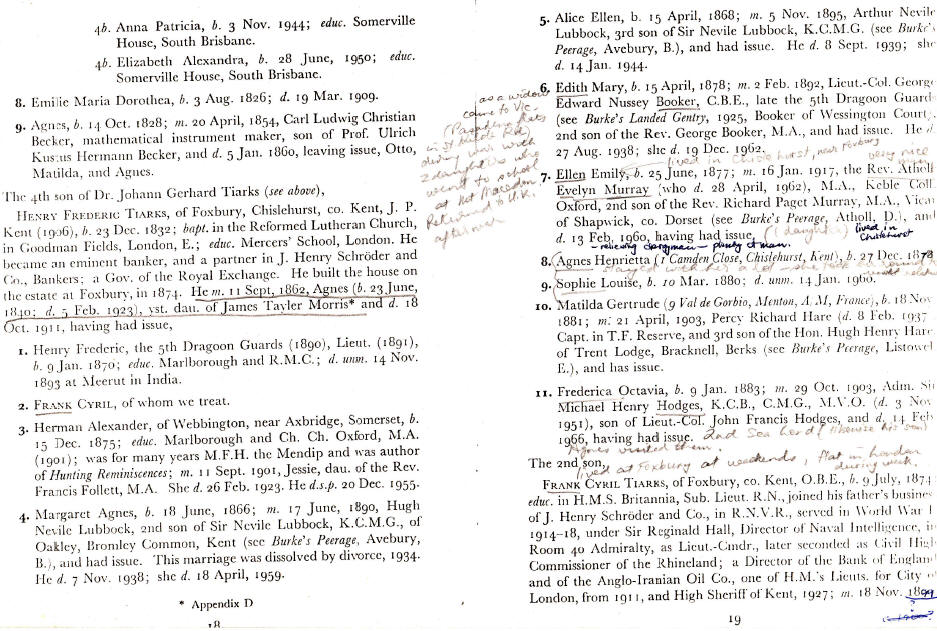 4b. Anna Patricia, b. 3 Nov. 1944; educ. Somerville
House, South Brisbane.
4b. Elizabeth Alexandra, b. 28 June, 1950; educ.
Somerville House, South Brisbane.
8. Emilie Maria Dorothea, b. 3 Aug. 1826; d. 19 Mar. 1909.
9. Agnes, b. 14 Oct. 1828; m. 20 April, 1854, Carl Ludwig Christian
Becker, mathematical instrument maker, son of Prof. Ulrich
Kustus Hermann Becker, and d. 5 Jan. 1860, leaving issue, Otto,
Matilda, and Agnes.
The 4th son of Dr. Johann Gerhard Tiarks (see above),
HENRY FREDERIC TIARKS, of Foxbury, Chislehurst, co. Kent, J. P.
Kent (1906), b. 23 Dec. 1832; bapt. in the Reformed Lutheran Church,
in Goodman Fields, London, E.; educ. Mercers' School, London. He
became an eminent banker, and a partner in J. Henry Schröder and
Co., Bankers; a Gov. of the Royal Exchange. He built the house on
the estate at Foxbury, in 1874. He m. 11 Sept, 1862, Agnes (b. 23 June,
1840; d. 5 Feb. 1923), yst. dau. of James Tayler Morris* and d. 18
Oct. 1911, having had issue,
1. Henry Frederic, the 5th Dragoon Guards (1890), Lieut. (1891),
b. 9 Jan. 1870; educ. Marlborough and R.M.C.; d. unm. 14 Nov.
1893 at Meerut in India.
2. FRANK CYRIL, of whom we treat.
3. Herman Alexander, of Webbington, near Axbridge, Somerset, b.
15 Dec. 1875; educ. Marlborough and Ch. Ch. Oxford, M.A.
(1901); was for many years M.F.H. the Mendip and was author
of Hunting Reminiscences; m. 11 Sept. 1901, Jessie, dau. of the Rev.
Francis Follett, M.A. She d. 26 Feb. 1923. He d.s.p. 20 Dec. 1955.
4. Margaret Agnes, b. 18 June, 1866; m. 17 June, 1890, Hugh
Nevile Lubbock, 2nd son of Sir Nevile Lubbock, K.C.M.G., of
Oakley, Bromley Common, Kent (see Burke's Peerage, Avebury,
B.), and had issue. This marriage was dissolved by divorce, 1934.
He d. 7 Nov. 1938; she d. 18 April, 1959.
* Appendix D
18
5. Alice Ellen, b. 15 April, 1868; m. 5 Nov. 1895, Arthur Nevile
Lubbock, 3rd son of Sir Nevile Lubbock, K.C.M.G. (see Burke's
Peerage, Avebury, B.), and had issue. He d. 8 Sept. 1939; she
d. 14 Jan. 1944.
as a widow
came to Vic.
during war with
2 daughters who
went to school
at Mt Macedon
Returned to U.K.
after war
6. Edith Mary, b. 15 April, 1878; m. 2 Feb. 1892, Lieut.-Col. George
Edward Nussey Booker, C.B.E., late the 5th Dragoon Guard
(see Burke's Landed Gentry, 1925, Booker of Wessington Court),
2nd son of the Rev. George Booker, M.A., and had issue. He d.
27 Aug. 1938; she d. 19 Dec. 1962.
lived in Chislehurst, near Foxbury
very nice
7. Ellen Emily, b. 25 June, 1877; m. 16 Jan. 1917, the Rev. Atholl
Evelyn Murray (who d. 28 April, 1962), M.A., Keble Coll.
Oxford, 2nd son of the Rev. Richard Paget Murray, M.A., Vicar
of Shapwick, co. Dorset (see Burke's Peerage, Atholl, D.), and
d. 13 Feb. 1960, having had issue. (1 daughter) lived in
Chislehurst
relieving clergyman
8. Agnes Henrietta (7 Camden Close, Chislehurst, Kent), b. 27 Dec. 1878
stayed with her a lot - she took me
9. Sophie Louise, b. 10 Mar. 1880; d. unm. 14 Jan. 1960.
10. Matilda Gertrude (9 Val de Gorbio, Menton, A. M, France), b. 18 Nov
1881; m. 21 April, 1903, Percy Richard Hare (d. 8 Feb. 1937
Capt. in T.F. Reserve, and 3rd son of the Hon. Hugh Henry Hare
of Trent Lodge, Bracknell, Berks (see Burke's Peerage, Listowel
E.), and has issue.
11. Frederica Octavia, b. 9 Jan. 1883; m. 29 Oct. 1903, Adm. Sir
Michael Henry Hodges, K.C.B., C.M.G., M.V.O. (d. 3 Nov
1951), son of Lieut.-Col. John Francis Hodges, and d. 14 Feb
1966, having had issue. 2nd Sea Lord (likewise his son)
Agnes visited them.
The 2nd son,
lived at Foxbury at weekends, flat in London
during week.
FRANK CYRIL TIARKS, of Foxbury, co. Kent, O.B.E., b. 9 July, 1874
educ. in H.M.S. Britannia, Sub. Lieut. R.N., joined his father's busines
of J. Henry Schröder and Co., in R.N.V.R., served in World War I
1914-18, under Sir Reginald Hall, Director of Naval Intelligence, in
Room 40 Admiralty, as Lieut.-Cmdr., later seconded as Civil High
Commissioner of the Rhineland; a Director of the Bank of England
and of the Anglo-Iranian Oil Co., one of H.M.'s Lieuts. for City o
London, from 1911, and High Sheriff of Kent, 1927; m. 18 Nov. 1899
?
19